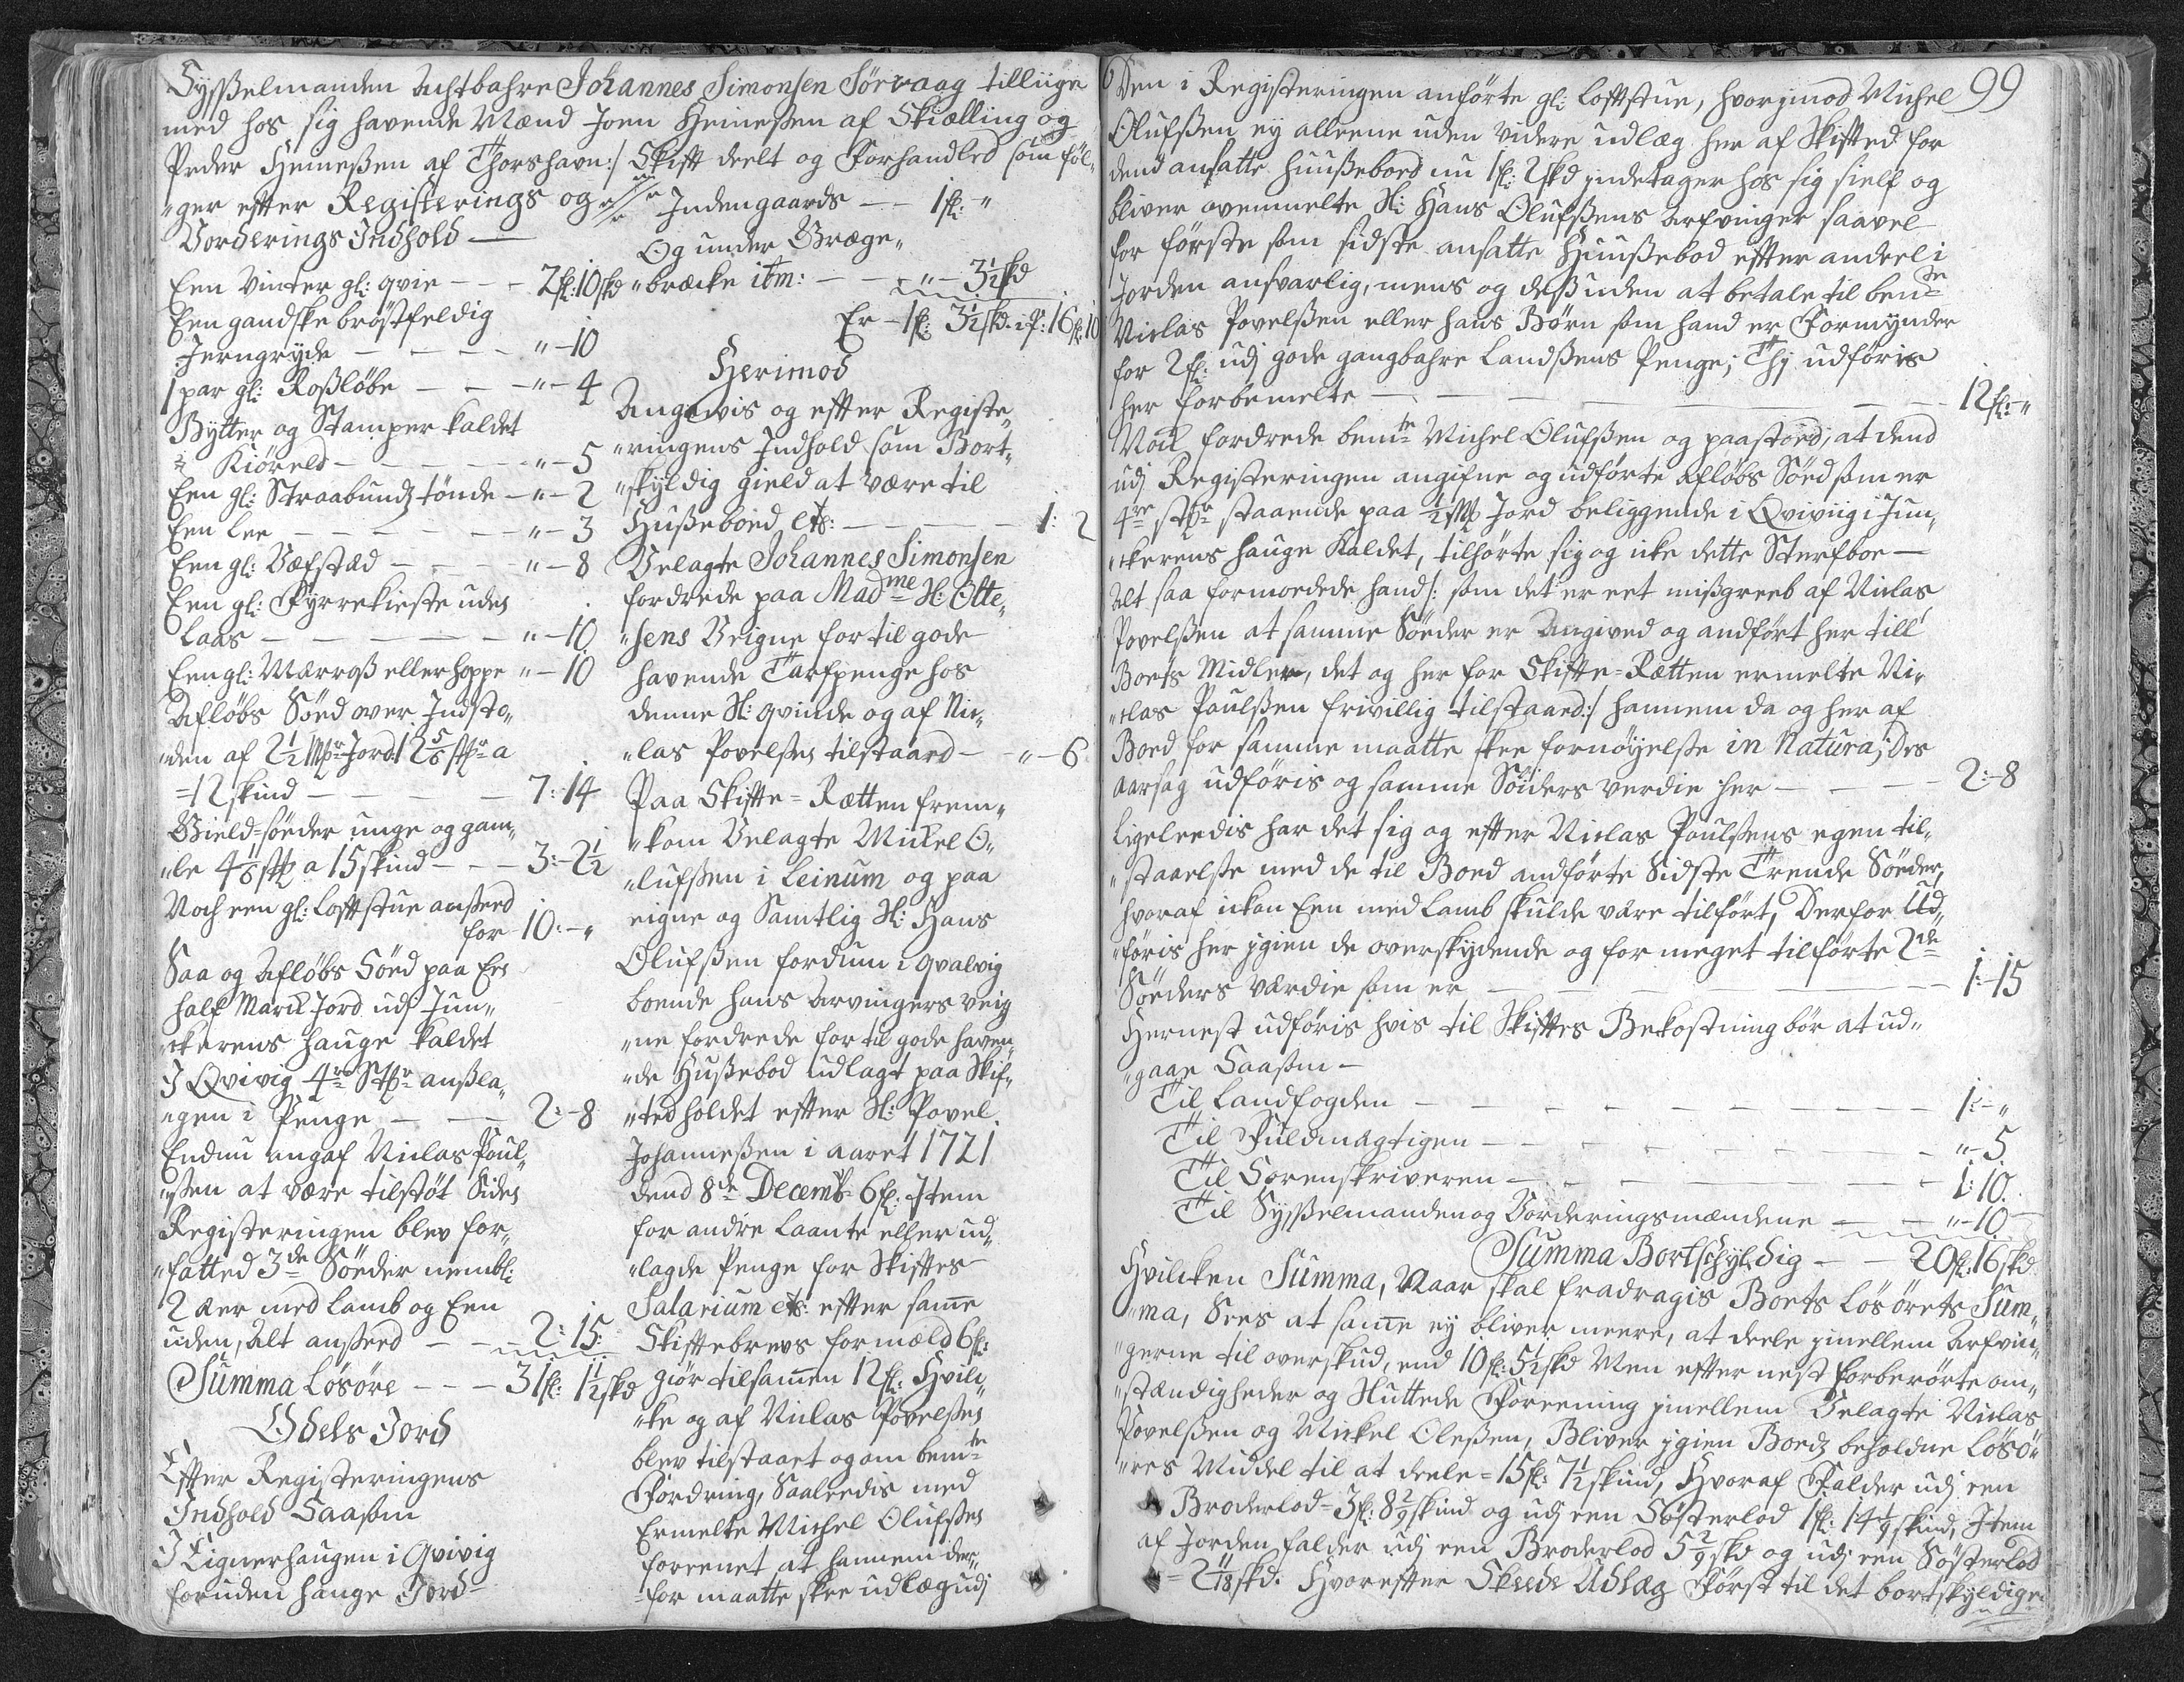 Sysselmanden Achtbahre Johannes Simonsen Sørvaag tilliige
med hos sig havende Mænd Joen Heinessen af Skiælling og
Peder Heinessen af Thorshavn:/ Skift deelt og Forhandled som føl„
„ger effter Registerings og
Vorderings Indhold —
Een Vinter gl: qvie — — - 2fl: 10skd
Een gandske brøstfeldig
Jerngryde — — — — "-10
1 par gl: Rosløbe — — — "- 4
Bytter og Stamper kaldet
Kiøreld — — — — "- 5
Een gl: Straabundz tønde — "- 2
Een Lee — — — — — "- 3
Een gl: Væfstad — — — "- 8
Een gl: Fyrrekiste uden
Laas — — — — — "-10
Een gl: Mærross eller hoppe "-10
Afløbs Søed over Indsto„
„den af 2½ Mk Jord 12 5/6 stk a
=12 skind — — — — 7: 14
Gield=søeder unge og gam„
„le 4 1/6 stk a 15 skind — — - 3:-2½
Noch een gl: Loftstue ansserd
for 10:-"
Saa og Afløbs Søed paa Een
half Marck Jord udj Jun„
„ckerens hauge kaldet
I Qvivig 4re Stkr anssla„
„gen i Penge — — — 2:-8
Endnu angaf Niclas Poul„
„ssen at være tilstøt Siden
Registeringen blev for„
„fatted 3de Søeder nembl:
2 Aer med Lamb og Een
uden, Alt ansserd — — 2: 15:
Summa Løsøre - - - 31fl: 1½skd
Odels Jord
Effter Registeringens
Indhold Saasom
I Lignerhaugen i Qvivig
foruden hauge Jord-
Indengaards — — 1fl: "
Og under Bræge„
„bræcke itm: — — — "- 3½skd
Er - 1fl: 3½skd: 16fl: 10
Herimod
Angivis og effter Registe„
„ringens Indhold som Bort„
„skyldig gield at være til
Hussebord etc: — — — — 1: 2
Velagte Johannes Simonsen
fordrede paa Madme Sl: Otte„
„sens Veigne for til gode
havende Tarfpenge hos
denne Sl: qvinde og af Nic„
„las Povelssen tilstaard — "-6
Paa Skifte=Rætten frem„
„kom Velagte Mickel O„
„lufssen i Leinum og paa
eigne og Samtlig Sl: Hans
Olufssen fordum i Qvalvig
boende hans Arvingers veig
„ne fordrede for til gode haven„
„de Hussebod udlagt paa Skif„
„ted holdet effter Sl: Povel
Johannessen i aaret 1721
dend 8de Decemb: 6fl: Item
for andre laante eller ud„
„lagde Penge for Skiftes
Salarium etc: effter samme
Skiftebrevs formæld 6fl:
giør tilsammen 12fl: Hvil„
„ke og af Niclas Povelssen
blev tilstaart og om bemte
Fordring, Saaleedis med
Ermelte Michel Olufssen
foreenet at hannem der„
„for maatte skee udlæg udj
99
Den i Registeringen anførte gl: Loftstue, hvorimod Michel
Olufssen ey alleene uden videre udlæg her af Skifted for
dend ansatte Huussebord nu 1fl: 2skd indetager hos sig sielf og
bliver ovenmelte Sl: Hans Olufssens Arfvinger saavel
for første som sidste ansatte Huussebod effter andeel i
Jorden ansvarlig, mens og dessuden at betale til bente
Niclas Povelssen eller hans Børn som hand er Formynder
for 2fl: udj gode gangbahre Landssens Penge; Thj udføris
her forbemelte — — — — — — — 12fl:-"
Noch fordrede bemte Michel Olufssen og paastoed, at dend
udj Registeringen angifne og udførte Afløbs Søed som er
4re stkr staaende paa ½ Mk Jord beliggende i Qviviig i Jun„
„ckerens hauge Kaldet, tilhørte sig og icke dette Sterfboe —
Alt saa formoedede hand /: som det er eet missgreeb af Niclas
Povelssen at samme Søeder er Angived og andført her till
Boets Midler, det og her for Skifte=Rætten ermelte Ni„
„clas Poulssen frivillig tilstaaed:/ hannem da og her af
Boed for samme maatte skee fornøyelsse in Natura; Des
aarsag udføris og samme Søeders verdie her — — — 2:-8
Ligeleedis har det sig og effter Niclas Poulssens egen til„
„staaelsse med de til Boed andførte Sidste Trende Søeder,
hvoraf ickon Een med Lamb skulde være tilført, Derfor Ud„
„føris her igien de overskydende og for meget tilførte 2de
Søeders værdie som er — — — — — — — 1:-15
Hernest udføris hvis til Skiftes Bekostning bør at ud„
„gaae Saasom —
Til Landfogden — — — — — — — — 1:-"
Til Fuldmægtigen — — — — — — — "-5
Til Sorenskriveren — — — — — — — 1:10.
Til Sysselmanden og Vorderingsmændene — — "-10
Summa Bortschyldig — — 20fl: 16skd
Hvilcken Summa, Naar skal fradragis Boets Løsørets Sum„
„ma, Sees at samme ey bliver meere, at deele imellem Arfvin„
„gerne til overskud, end 10fl: 5½skd Men effter nest forberørte om„
„stændigheder og Sluttede Foreening imellem Velagte Niclas
Povelssen og Mickel Olessen, Bliver igien Boedz beholdne Løsø„
„res Middel til at deele = 15fl: 7½ skind, Hvoraf Falder udj een
Broderlod = 3fl: 8 2/9 skind og udj een Søsterlod 1fl: 14 1/9 skind, Item
af Jorden falder udj een Broderlod 5 2/9 skd og udj een Søsterlod
= 2 11/18 skd. Hvoreffter Skeede Udlæg Først til det bortskyldige